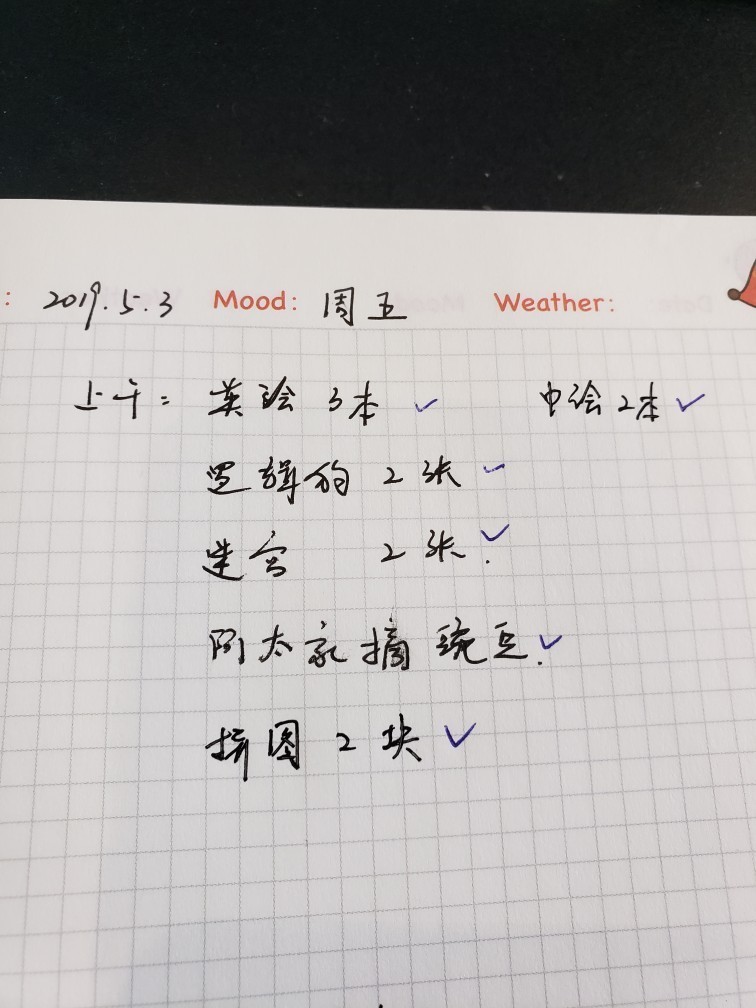 : 2019.5.3 Mood: 周五 Weather:
上午: 英绘 3本 ✓ 中绘 2本 ✓
逻辑狗 2张 ✓
迷宫 2张. ✓
阿太家摘豌豆. ✓
拼图 2块 ✓